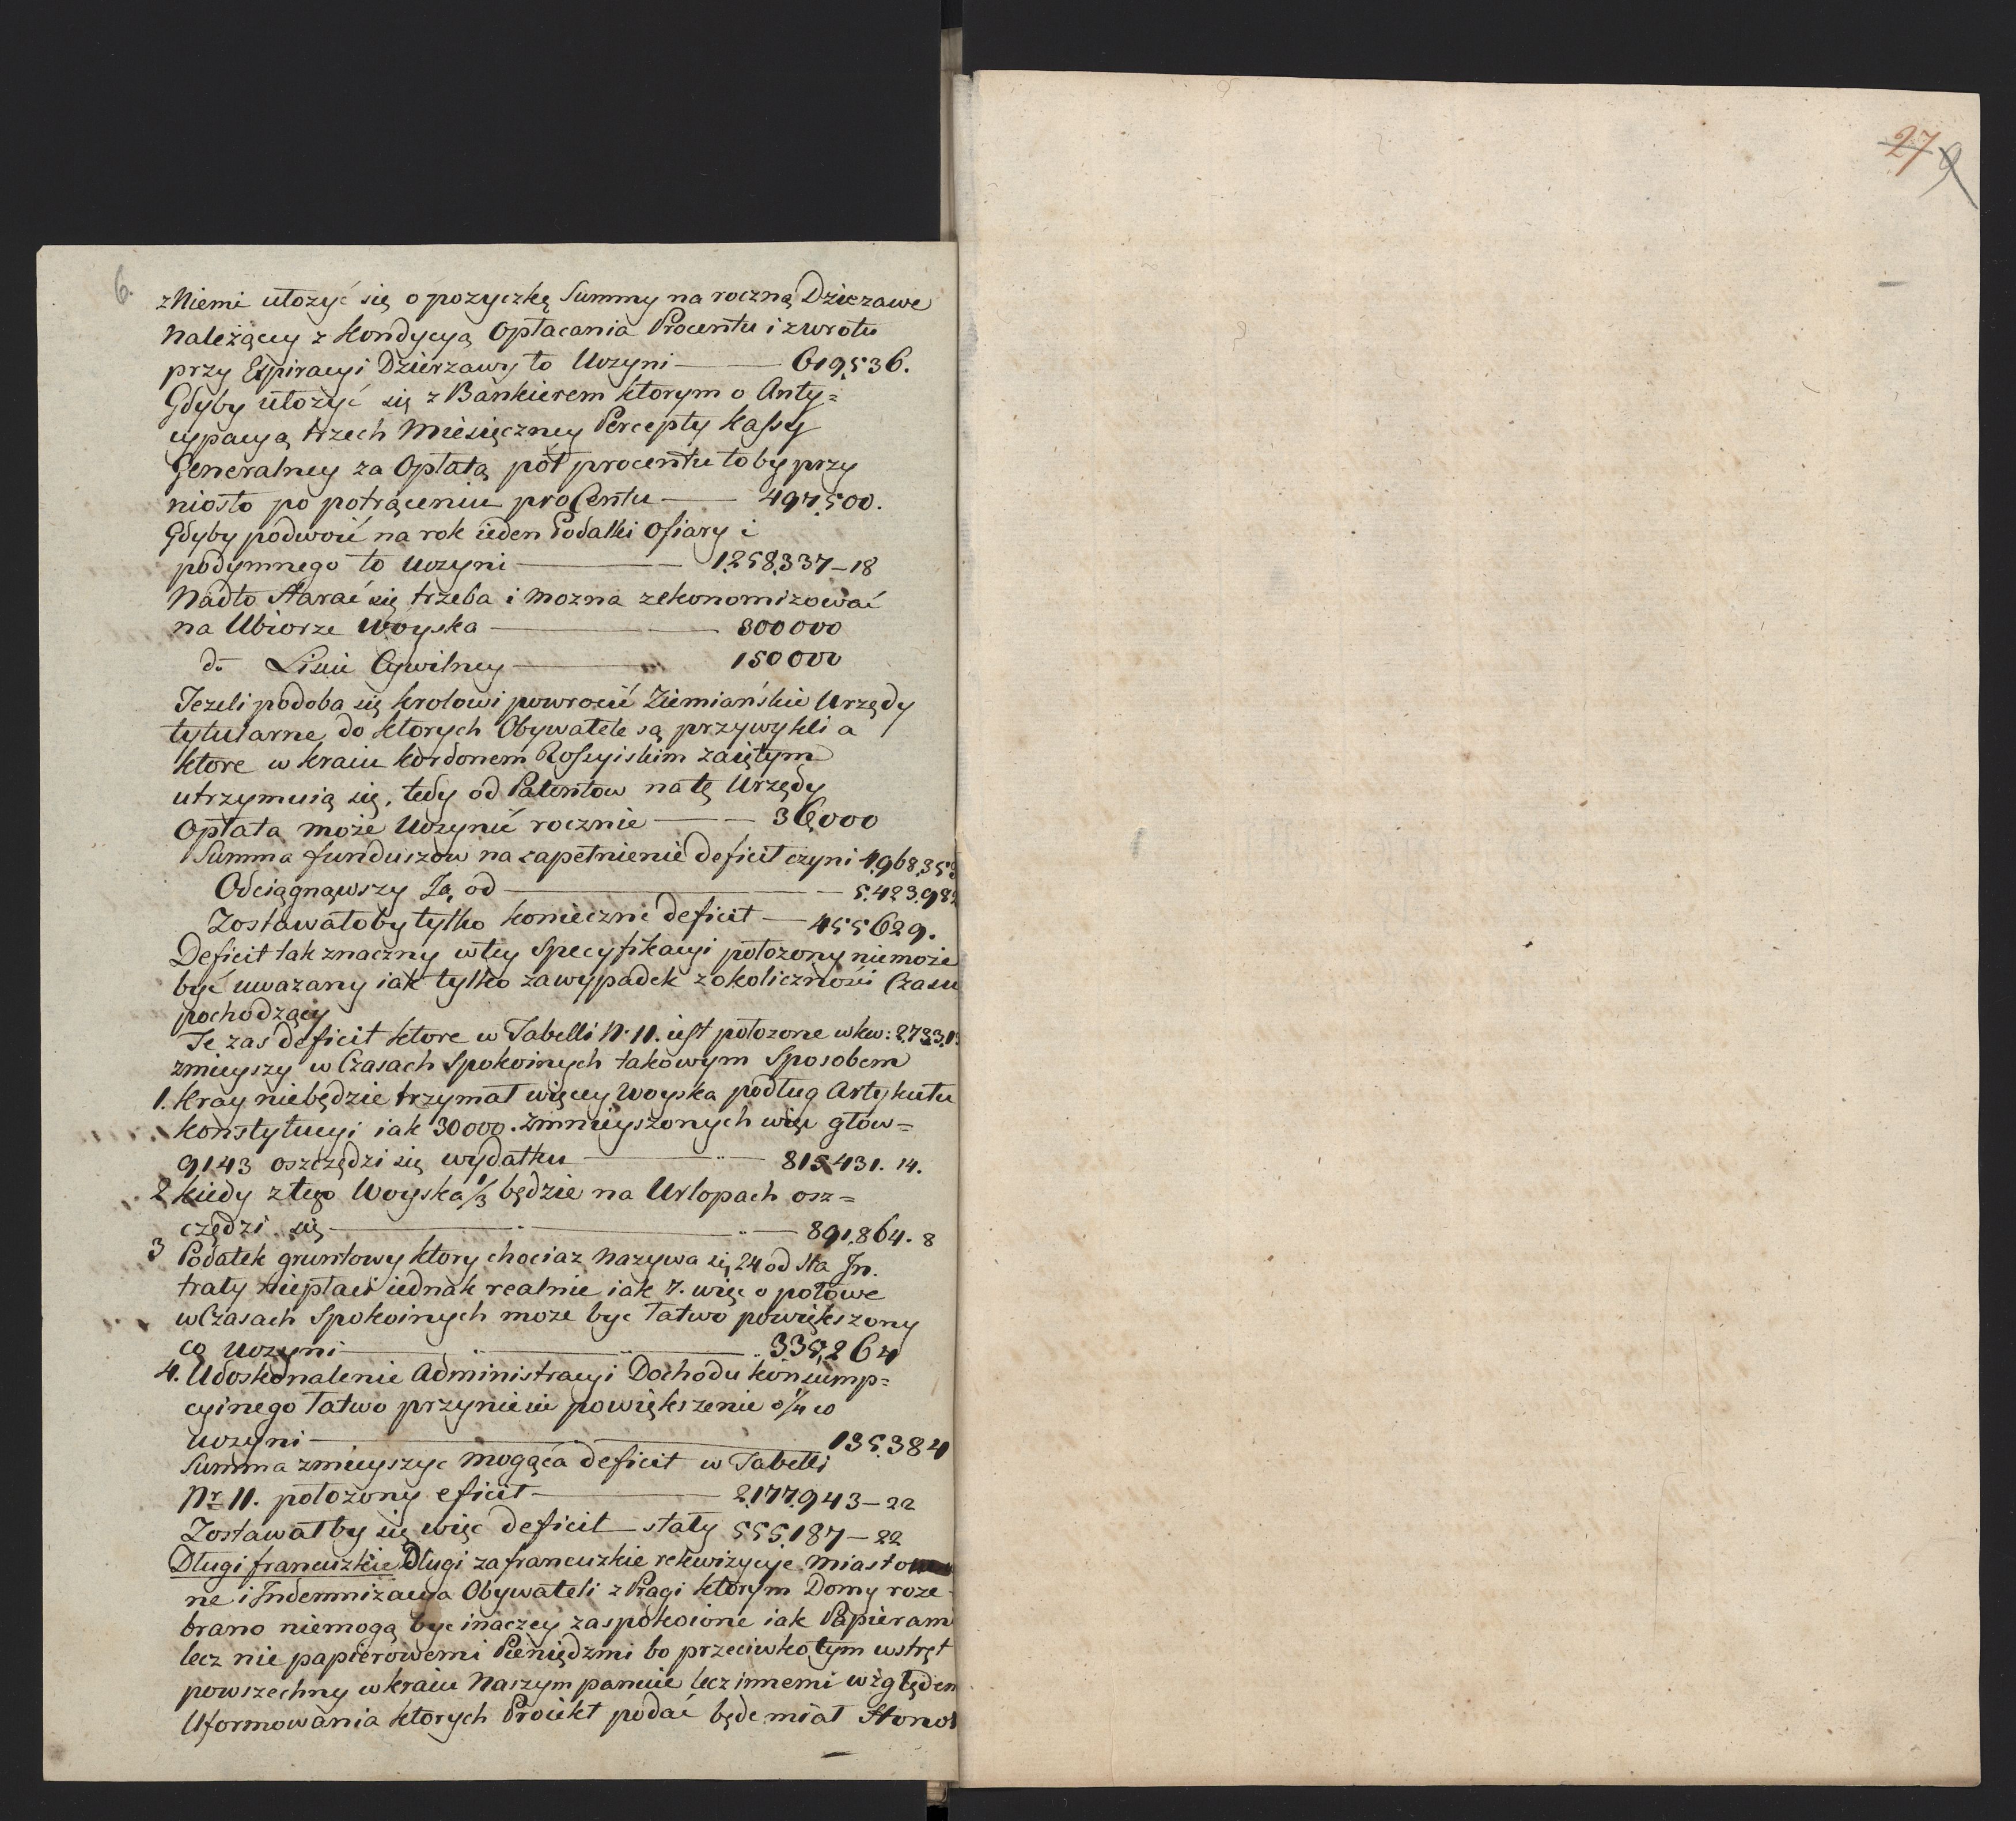 6.
27 9
z Niemi ułozyć się o pozyczkę Summy na roczną Dzierzawe
należący z Kondycyą Opłacania Procentu i zwrotu
przy Expiracyi Dzierzawy to Uczyni — 619,536.
Gdyby ułozyć się z Bankierem ktorym o Anty=
cypacyą trzech Miesięczney Percepty Kassy
Generalney za Opłatą pół procentu to by przy
niosło po potrąceniu procentu — 497,500.
Gdyby podwoić na rok ieden Podatki Ofiary i
podymnego to Uczyni — 1,258,337–18
Nadto Starać się trzeba i mozna zekonomizować
na Ubiorze Woyska — 300000
do Liście Cywilney — 150000
Jezeli podoba się Krolowi powrocić Ziemiańskie Urzędy
tytularne do ktorych Obywatele są przywykli a
ktore w kraiu kordonem Rossyiskim zaiętym
utrzymuią się, tedy od Patentow na tę Urzędy
Opłata może Uczynić rocznie — 36,000
Summa funduszow na zapełnienie deficit czyni 4,968,353
Odciągnąwszy Ją od — 5,423,98
Zostawałoby tylko konieczne deficit — 455629.
Deficit tak znaczny w tey Specyfikacyi położony nie może
być uwazany iak tylko za wypadek z okoliczności Czasu
pochodzący
Te zas deficit ktore w Tabelli N. 11. iest położone w kw: 2,733,1
zmieyszy w Czasach Spokoinych takowym Sposobem
1. Kray niebędzie trzymał więcey Woyska podług Artykułu
Konstytucyi iak 30000. zmnieyszonych więc głów=
9143 oszczędzi się wydatku — 815431. 14.
2 Kiedy z tego Woyska 1/3 będzie na Urlopach osz=
czędzi się — 891,864. 8
3 Podatek gruntowy ktory chociaz nazywa się 24 od sta In.
traty niepłaci iednak realnie iak 7. więc o połowe
w Czasach Spokoinych moze byc łatwo powiększony
co Uczyni — 335,264
4. Udoskonalenie Administracyi Dochodu konsump=
cyinego łatwo przyniesie powiększenie o 1/4 co
uczyni — 135,384
Summa zmieyszyc mogąca deficit w Tabelli
Nr 11. położony eficit — 2,177,943–22
Zostawałby się więc deficit stały 555,187–22
Długi francuzkie Długi za francuzkie rekwizycye Miasto
ne i Indemnizacya Obywateli z Pragi ktorym Domy roze
brano niemogą byc inaczey zaspokoione iak Papieram
lecz nie papierowemi Pieniędzmi bo przeciwko tym wstręt
powszechny w kraiu Naszym panuie lecz innemi względem
Uformowania ktorych Proiekt podać będe miał Honor